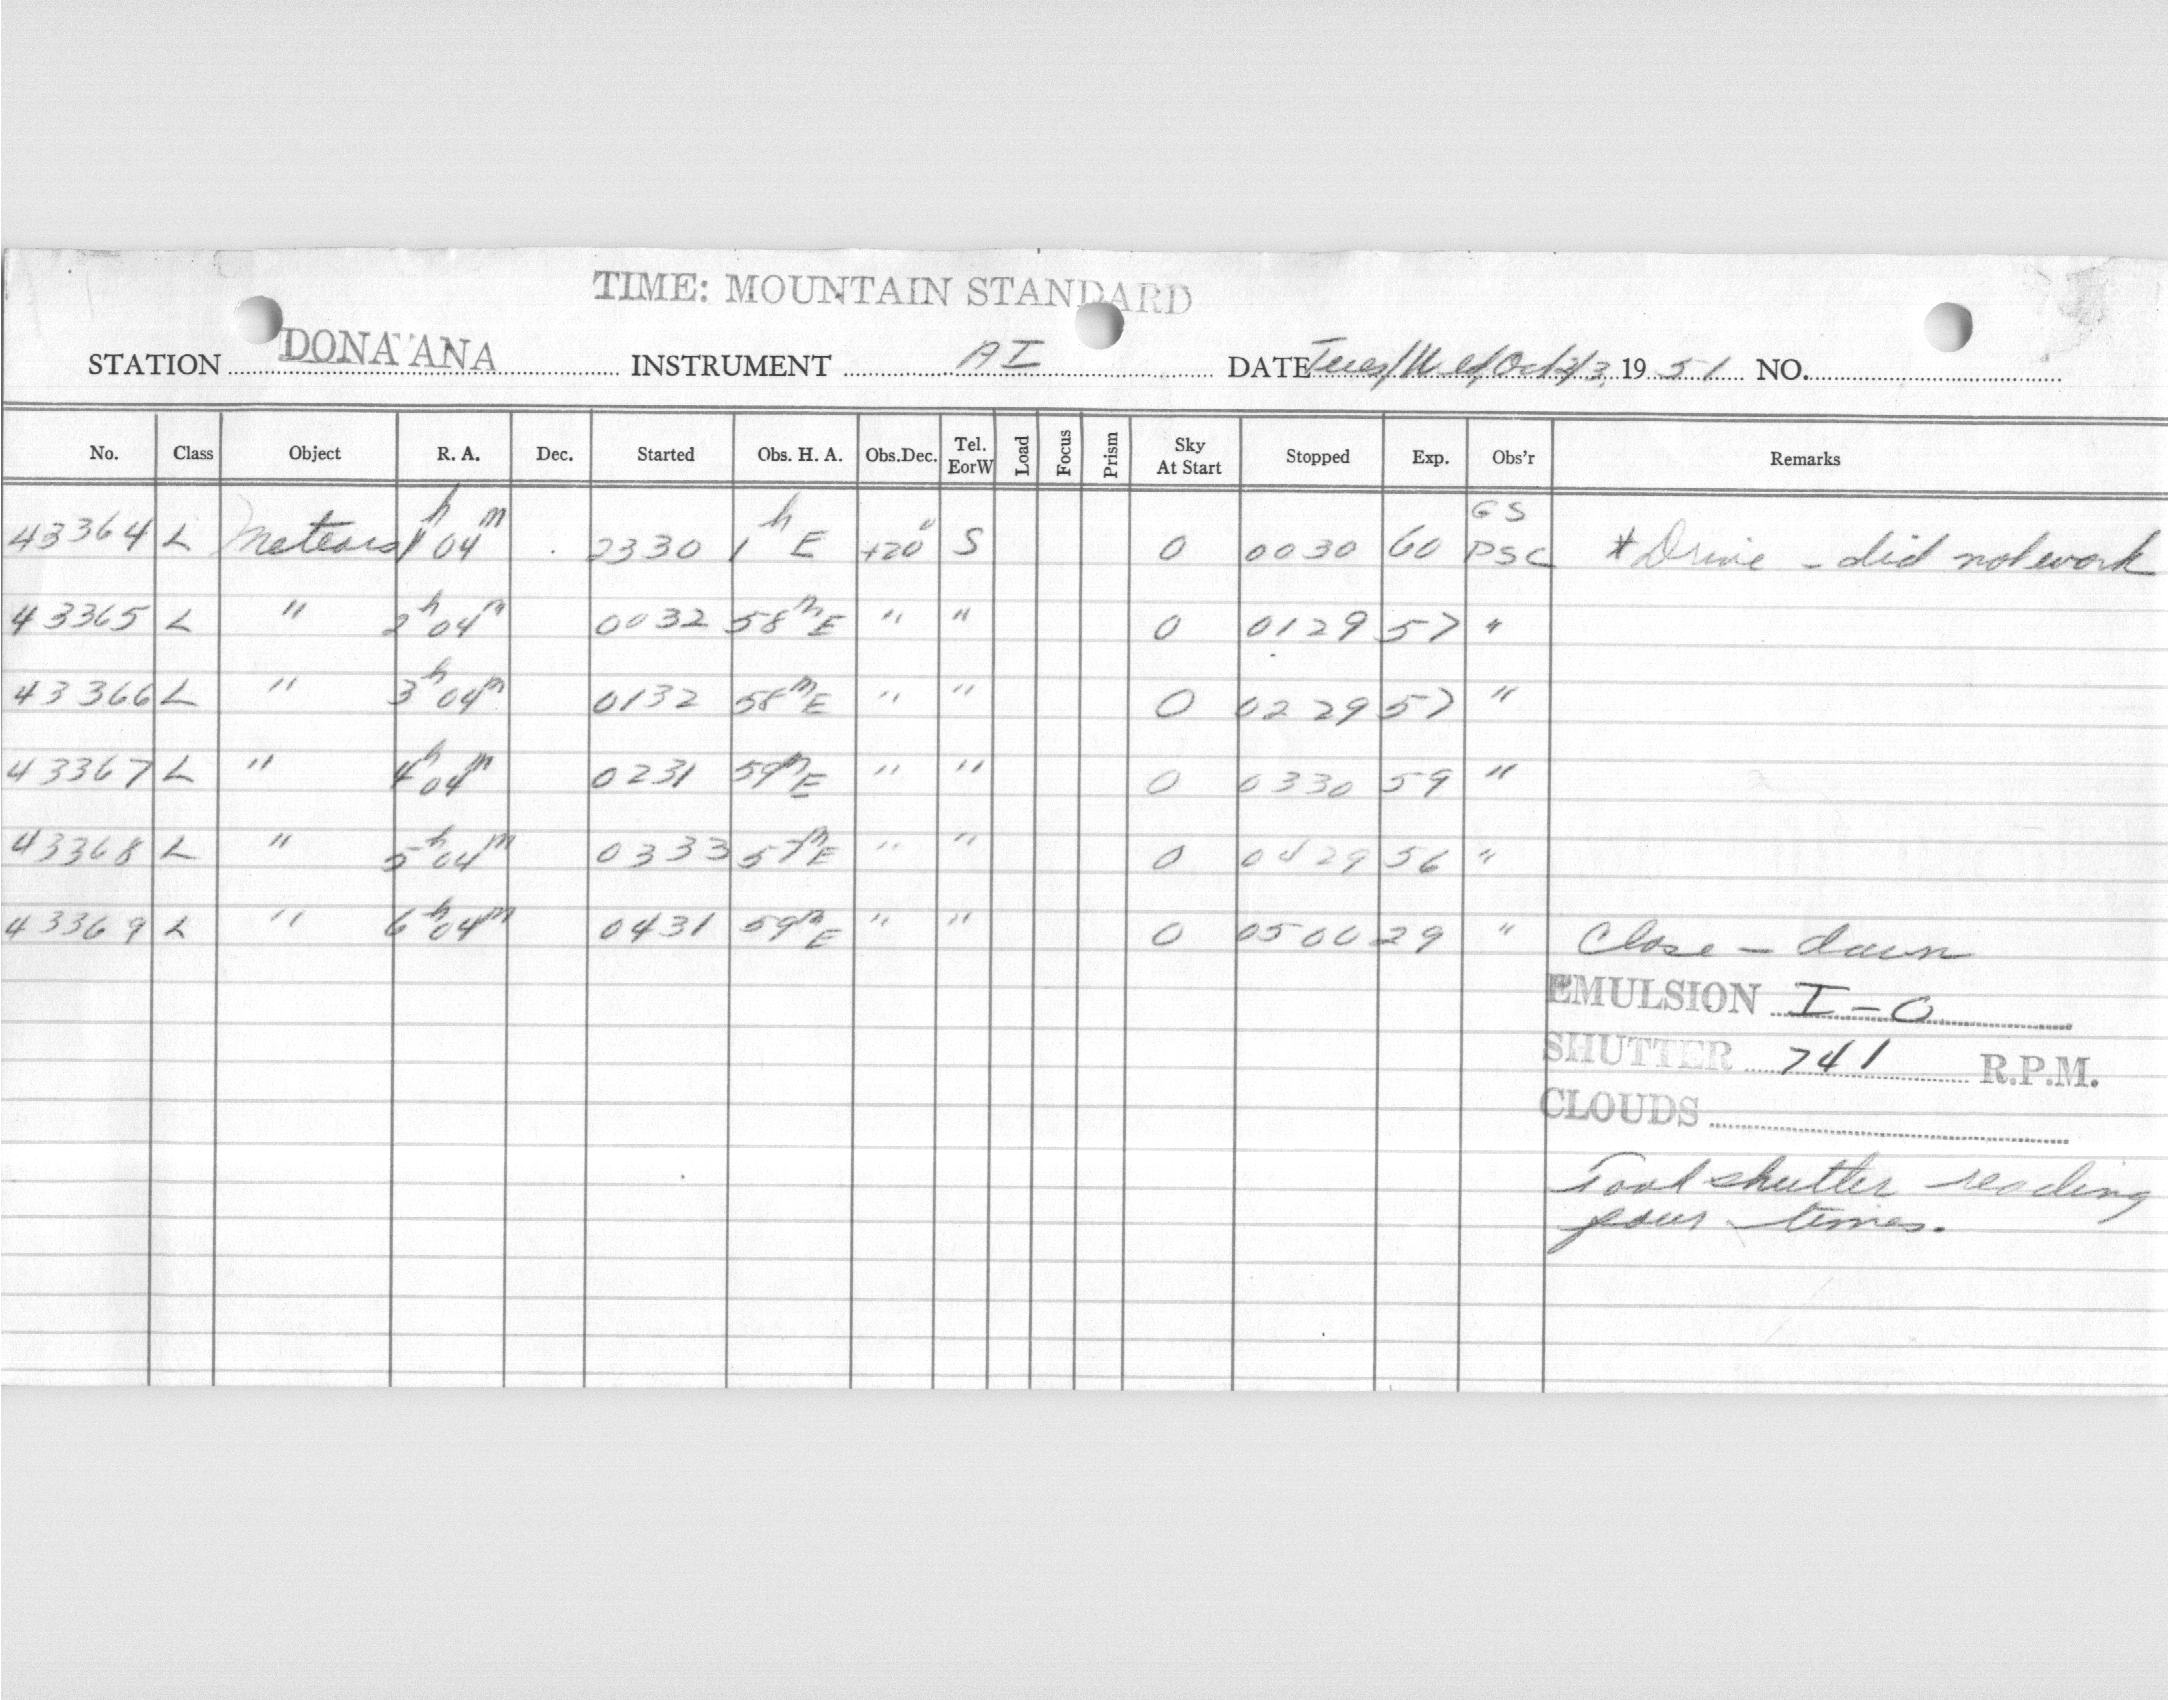 TIME: MOUNTAIN STANDARD
STATION DONA ANA INSTRUMENT AI DATE Tues/Wed, Oct 2/3, 1951 NO.
No. Class Object R. A. Dec. Started Obs. H. A. Obs.Dec. Tel. EorW Load Focus Prism Sky At Start Stopped Exp. Obs'r Remarks
43364 L Meteors 1h 04m 2330 1h E +20° S 0 0030 60 GS PSC * Drive - did not work
43365 L " 2h 04m 0032 58m E " " 0 0129 57 "
43366 L " 3h 04m 0132 58m E " " 0 0229 57 "
43367 L " 4h 04m 0231 59m E " " 0 0330 59 "
43368 L " 5h 04m 0333 57m E " " 0 0429 56 "
43369 L " 6h 04m 0431 59m E " " 0 0500 29 " Close - dawn
EMULSION I-O
SHUTTER 741 R.P.M.
CLOUDS
Took shutter reading
four times.